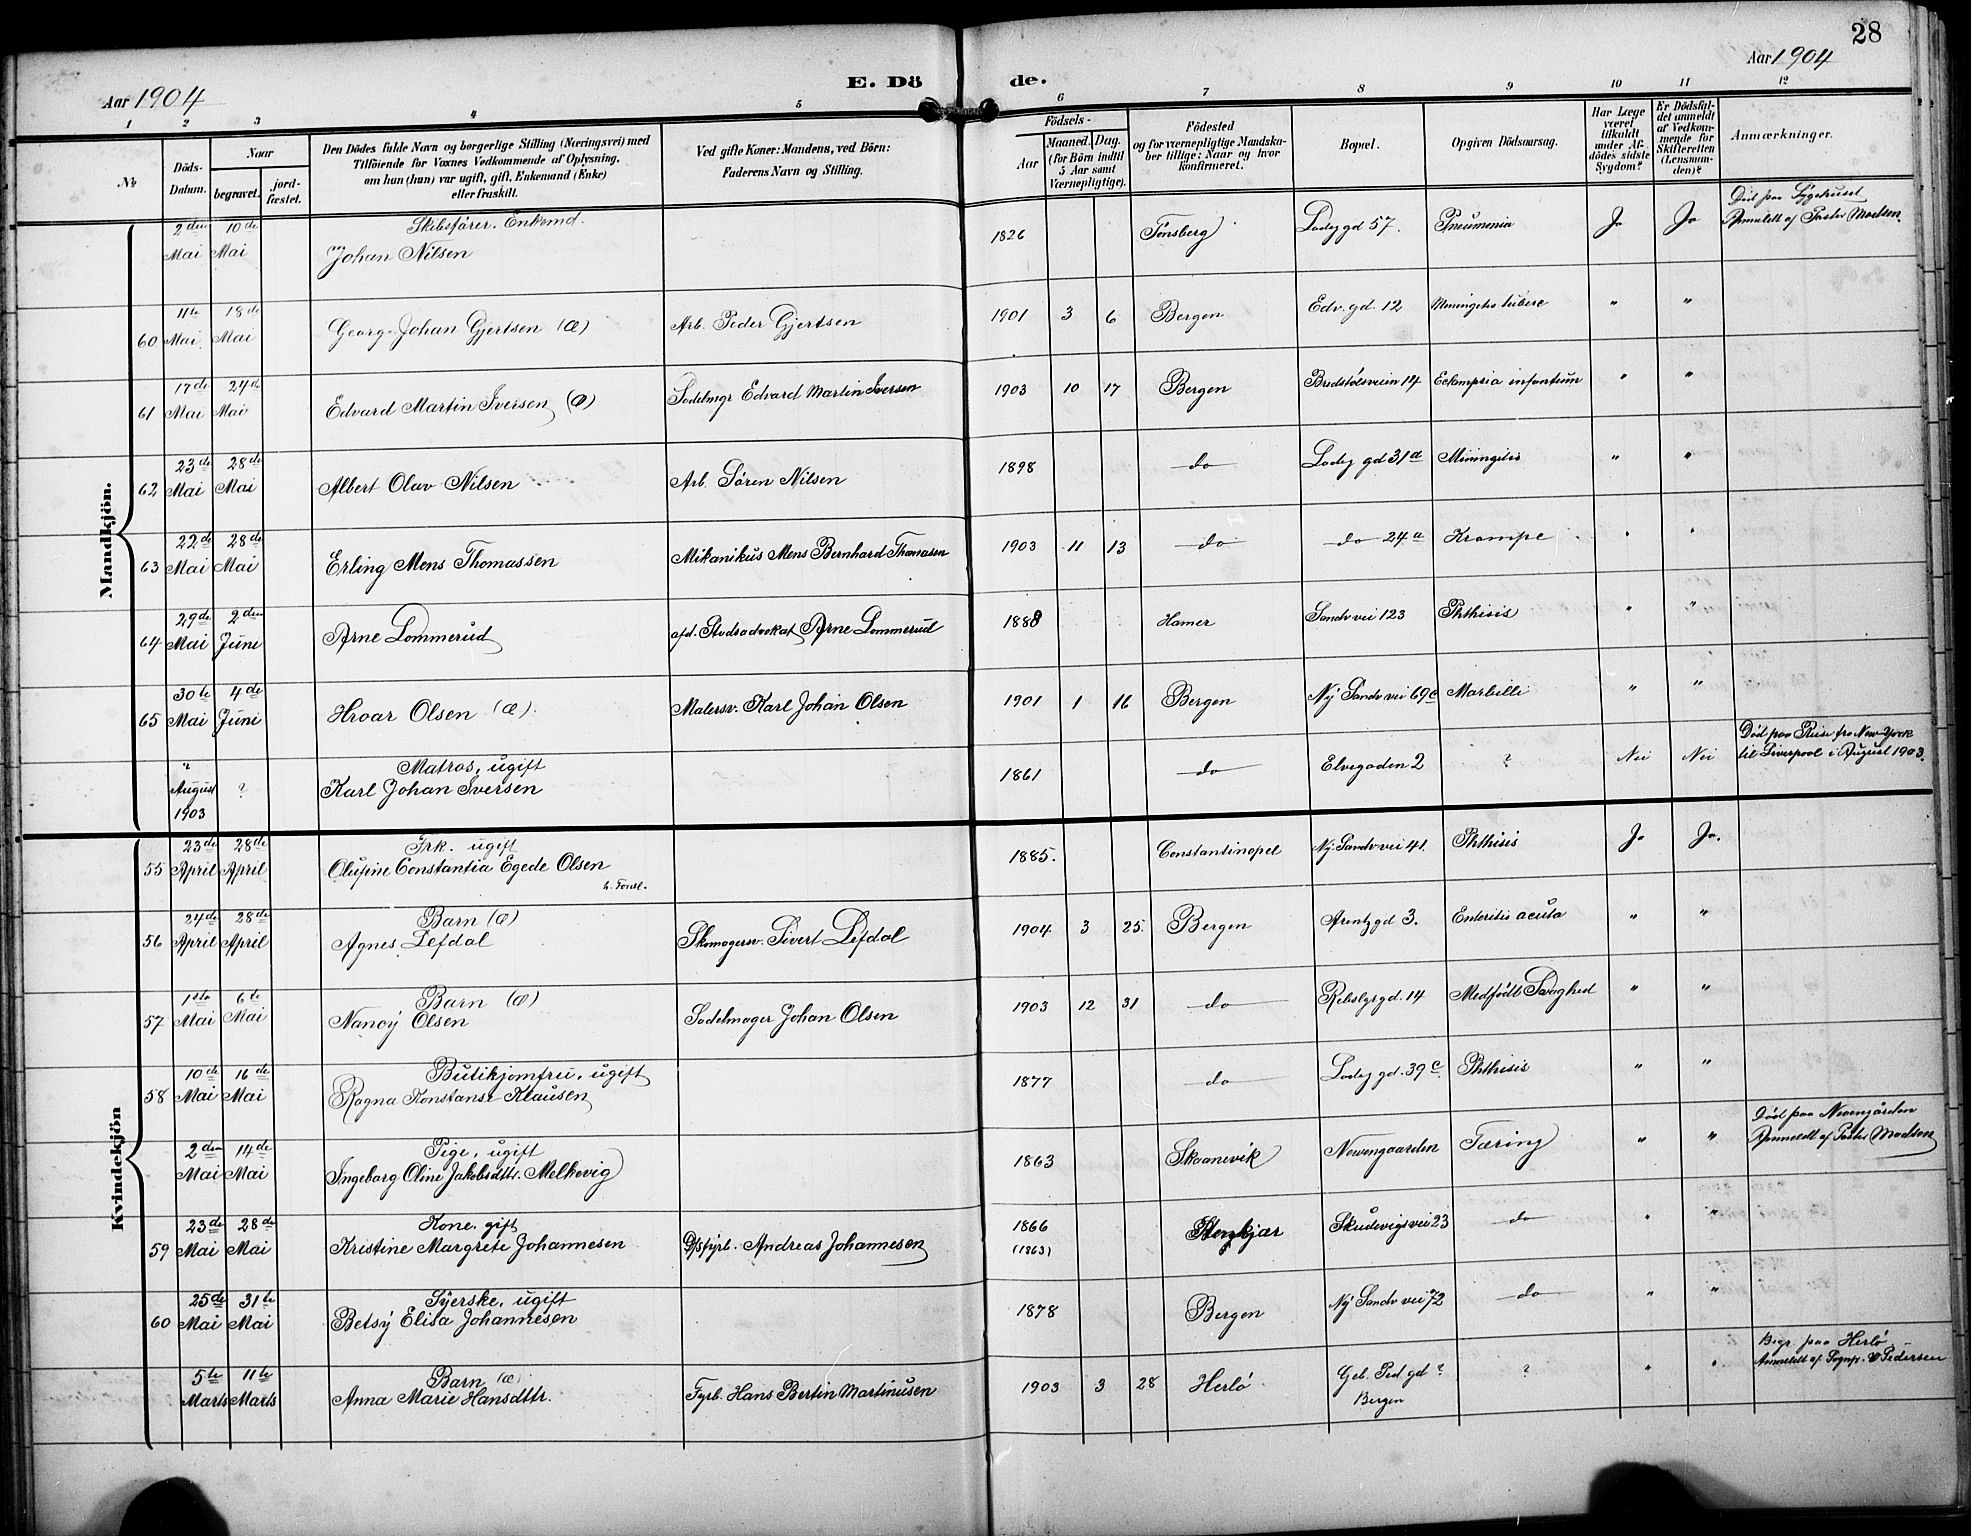 28
Aar 1904 E. Dö de. Aar 1904
1 2 3 4 5 6 7 8 9 10 11 12
№ Döds-Datum. Naar begravet. jord-fæstet. Den Dödes fulde Navn og borgerlige Stilling (Næringsvei) med Tilföiende for Voxnes Vedkommende af Oplysning, om han (hun) var ugift, gift, Enkemand (Enke) eller fraskilt. Ved gifte Koner: Mandens, ved Börn: Faderens Navn og Stilling. Födsels- Aar Maaned. Dag. (for Börn indtil 5 Aar samt Værnepligtige). Födested og for værnepligtige Mandskaber tillige: Naar og hvor konfirmeret. Bopæl. Opgiven Dödsaarsag. Har Læge været tilkaldt under Afdödes sidste Sygdom? Er Dödsfaldet anmeldt af Vedkommende for Skifteretten (Lensmanden)? Anmærkninger.
Mandkjön.
2den Mai 10de Mai Skibsfører. Enkemd. Johan Nilsen 1826 Tønsberg Ladeg gd 57. Pneumonia Ja Ja Død paa Sygehuset Anmeldt af Pastor Madsen.
60 11te Mai 18de Mai Georg Johan Gjertsen (Æ) Arb. Peder Gjertsen 1901 3 6 Bergen Edv. gd. 12 Meningitis tuberc " "
61 17de Mai 24de Mai Edvard Martin Iversen (Æ) Sadelmgr Edvard Martin Iversen 1903 10 17 Bergen Bredstølsveien 14 Eclampsia infantum " "
62 23de Mai 28de Mai Albert Olav Nilsen Arb. Søren Nilsen 1898 do Ladeg gd 31a Miningitis " "
63 22de Mai 28de Mai Erling Mons Thomassen Mikanikus Mons Bernhard Thomasen 1903 11 13 do do 24a Krampe " "
64 29de Mai 2den Juni Arne Lommerud afd. Stadsadvokat Arne Lommerud 1888 Hamer Sandv vei 123 Phthisis " "
65 30te Mai 4de Juni Hroar Olsen (Æ). Malersv. Karl Johan Olsen 1901 1 16 Bergen Ny Sandv vei 69c Marbilli " "
" August 1903 ? Matros, ugift Karl Johan Iversen 1861 do Elvegaden 2 ? Nei Nei Død paa Reise fra New York til Liverpool i August 1903.
Kvindekjön
55 23de April 28de April Frk. ugift Olufine Constantia Egede Olsen 1885. Constantinopel Ny Sandv vei 41. Phthisis Ja Ja.
56 24de April 28de April Barn (Æ) Agnes Lefdal Skomagersv. Sivert Lefdal 1904 3 25. Bergen Arentz gd 3. Enteritis acuta " "
57 1ste Mai 6te Mai Barn (Æ) Nancy Olsen Sadelmager Johan Olsen 1903 12 31 do Rebslgr gd. 14 Medfødt Svaghed " "
58 10de Mai 16de Mai Butikjomfru, ugift Ragna Konstanse Klausen 1877 do Ladeg gd. 39c. Phthisis " "
2den Mai 14de Mai Pige, ugift Ingeborg Oline Jakobsdttr. Melkevig 1863 Skaanevik Nevengaarden Tæring " " Død paa Nevengården Anmeldt af Pastor Madsen
59 23de Mai 28de Mai Kone, gift Kristine Margrete Johannesen D/Sfyrb. Andreas Johannesen 1866 (1863) Stenkjær Skudevigs vei 23 do " "
60 25de Mai 31te Mai Syerske, ugift Betsy Elisa Johannesen 1878 Bergen Ny Sandv vei 72 do " "
5te Marts 11te Marts Barn (Æ) Anna Marie Hansdttr. Fyrb. Hans Bertin Martinusen 1903 3 28 Herlø Geb. Ped. gd ? Bergen ? " " Begr. paa Herlø Anmeldt af Sognp. Pedersen